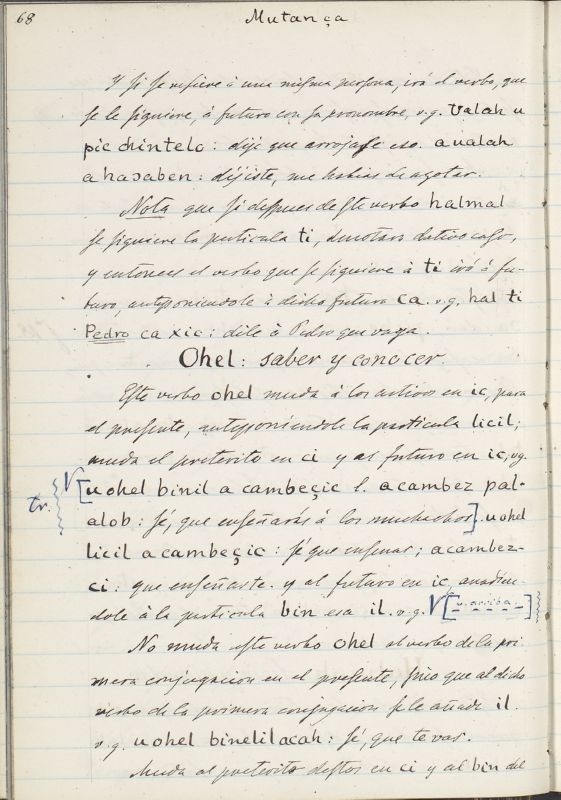 68
Mutança
Y si se refiere à una misma persona, irá el verbo, que
se le siguiere, à futuro con su pronombre, v.g. Valah u
pic chintelo: dije que arrojase eso. a ualah
a haɔaben: dijiste, me habias de agotar.
Nota que si despues de este verbo halmal
se siguiere la particula ti, denotara dativo caso,
y entonces el verbo que se siguiere à ti irá à fu-
turo, anteponiendole à dicho futuro ca. v.g. hal ti
Pedro ca xic: dile à Pedro que vaya.
Ohel: saber y conocer.
Este verbo ohel muda à los activos en ic, para
el presente, anteponiendole la particula licil;
muda el preterito en ci y al futuro en ic, v.g.
tr. V [u ohel binil a cambeçic l. a cambez pal-
alob: sé, que enseñarás à los muchachos]. u ohel
licil a cambeçic: sé que enseñas; a cambez-
ci: que enseñaste. y al futuro en ic, anadien-
dole à la particula bin esa il. v.g. V [v. arriba]
No muda este verbo ohel al verbo de la pri
mera conjugacion en el presente, sino que al dicho
verbo de la primera conjugacion se le añade il.
v.g. u ohel binelilacah: sé, que te vas.
Muda al preterito destos en ci y al bin del